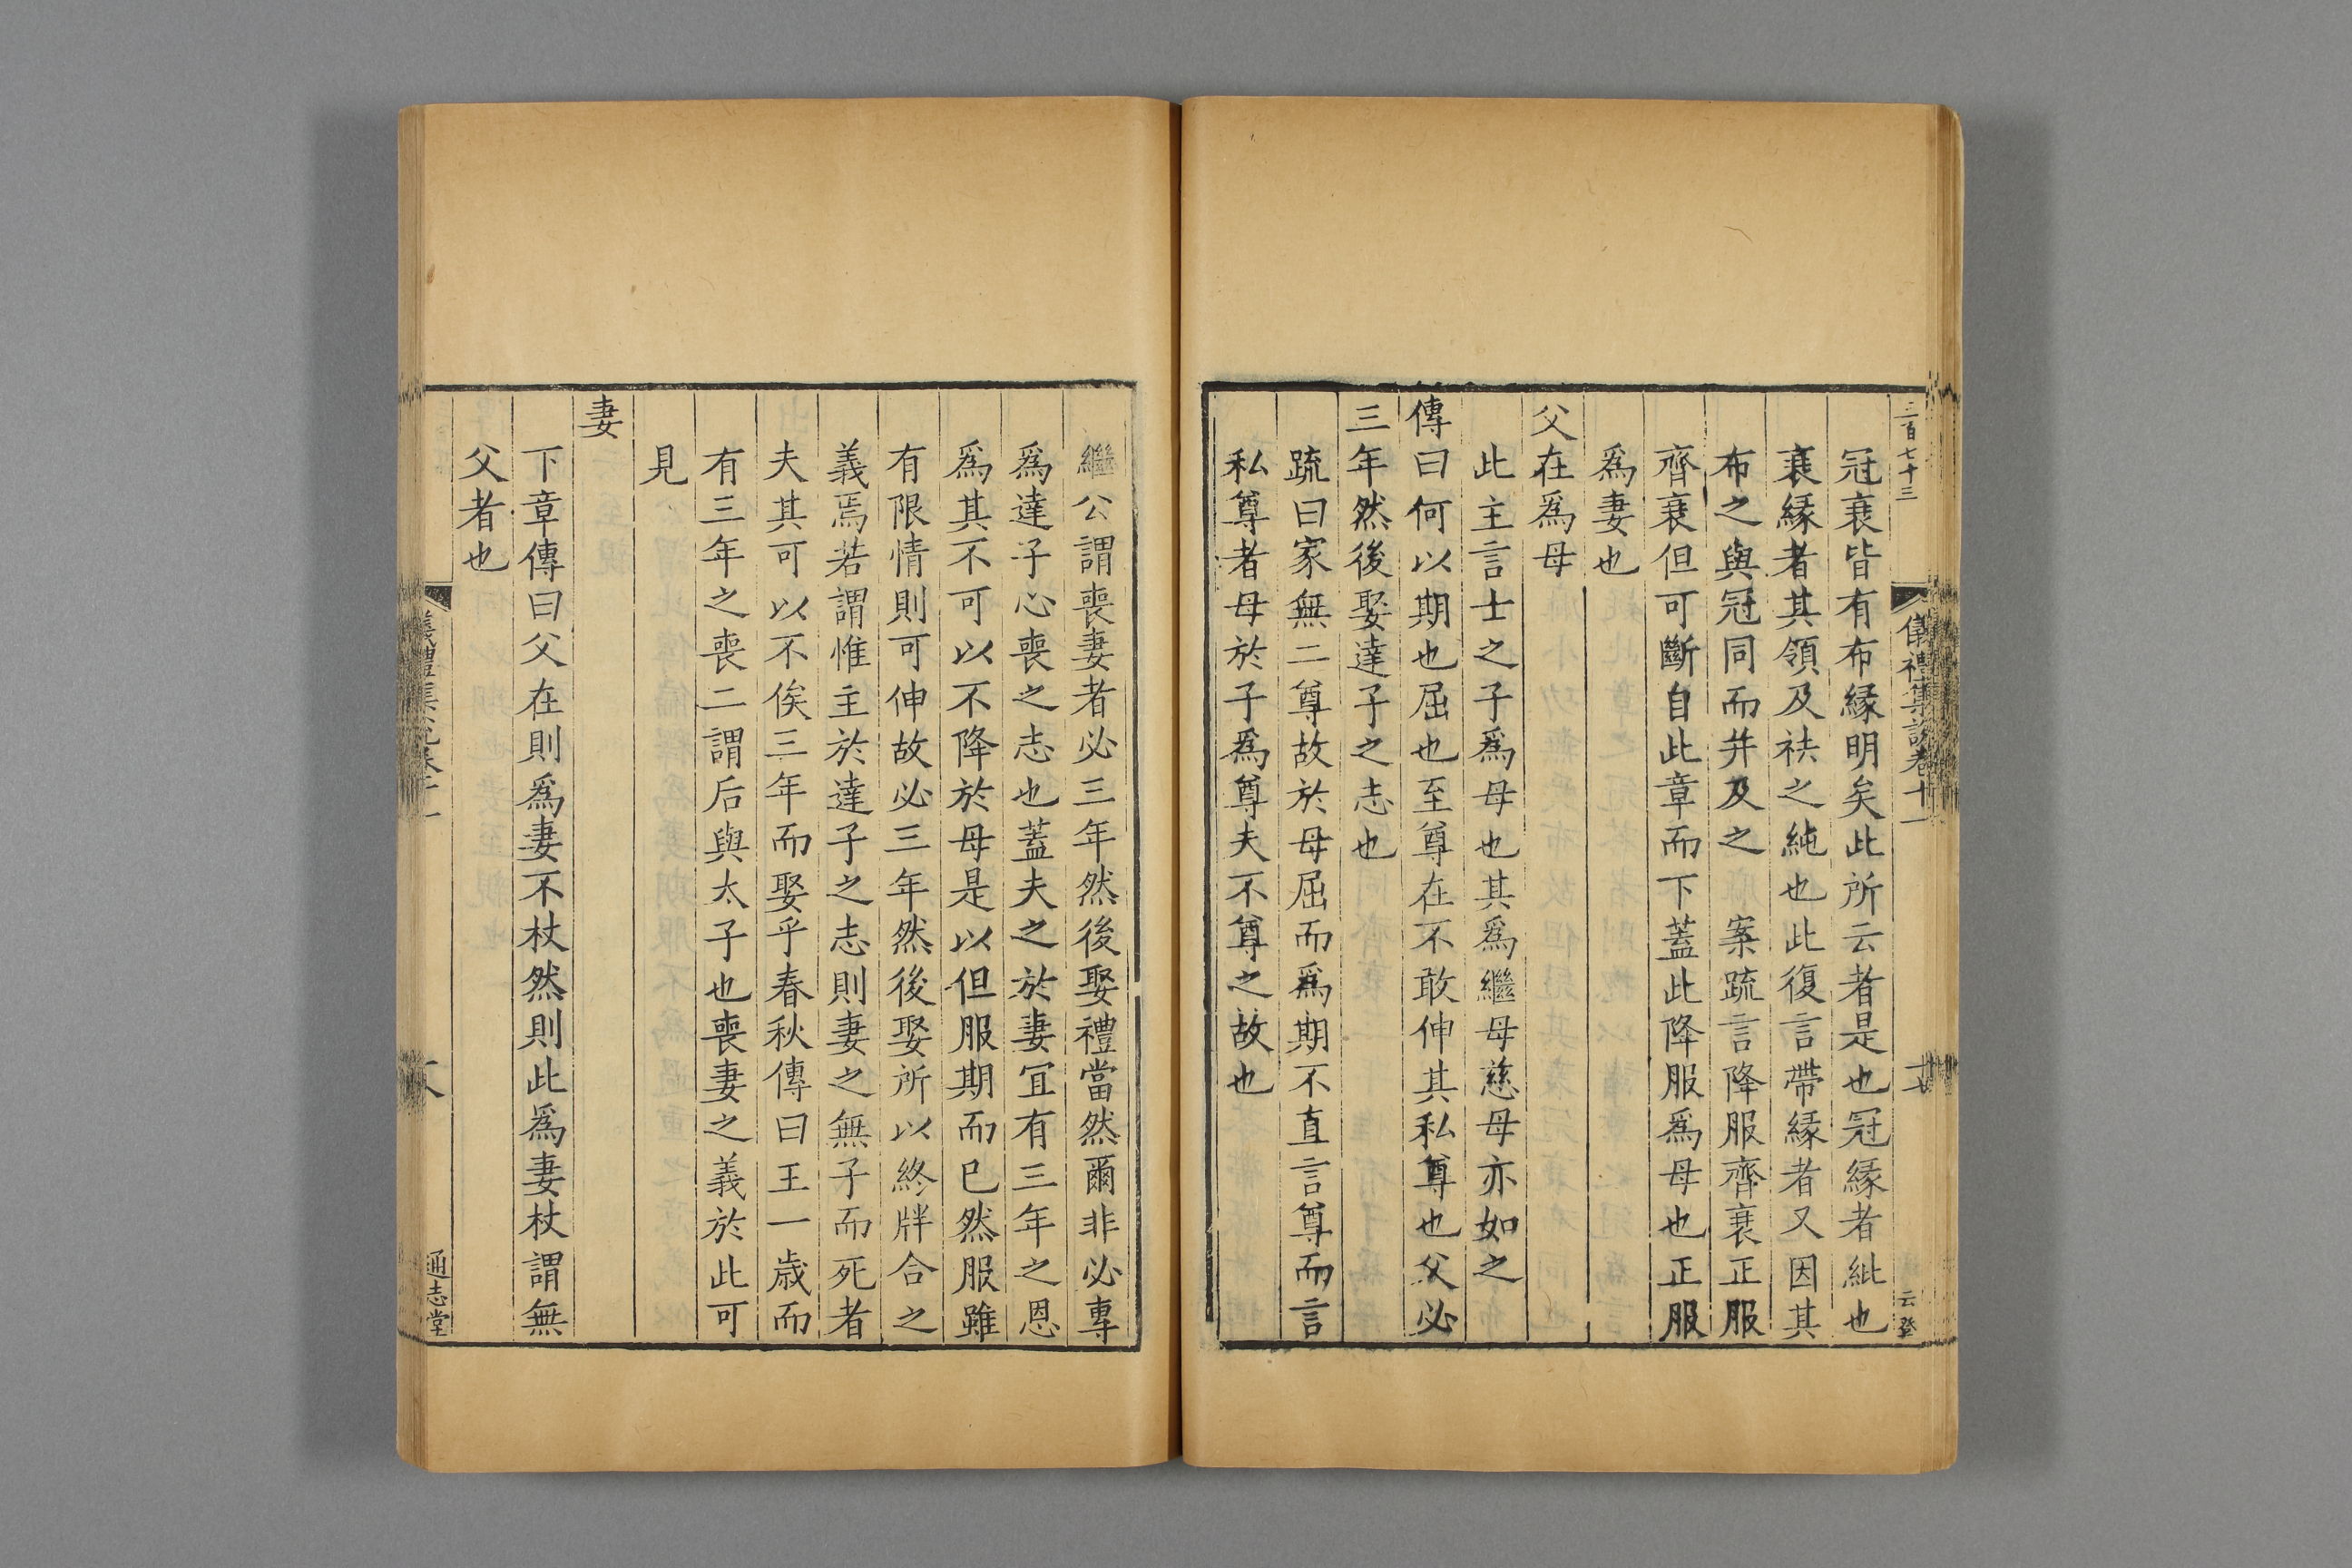 三百七十三
儀禮集說卷十一
十七
云登
冠衰皆有布緣明矣此所云者是也冠緣者紕也
衰緣者其領及袪之純也此復言帶緣者又因其
布之與冠同而并及之　案疏言降服齊衰正服
齊衰但可斷自此章而下蓋此降服爲母也正服
爲妻也
父在爲母
此主言士之子爲母也其爲繼母慈母亦如之
傳曰何以期也屈也至尊在不敢伸其私尊也父必
三年然後娶達子之志也
疏曰家無二尊故於母屈而爲期不直言尊而言
私尊者母於子爲尊夫不尊之故也
繼公謂喪妻者必三年然後娶禮當然爾非必專
爲達子心喪之志也蓋夫之於妻宜有三年之恩
爲其不可以不降於母是以但服期而已然服雖
有限情則可伸故必三年然後娶所以終牉合之
義焉若謂惟主於達子之志則妻之無子而死者
夫其可以不俟三年而娶乎春秋傳曰王一歲而
有三年之喪二謂后與太子也喪妻之義於此可
見
妻
下章傳曰父在則爲妻不杖然則此爲妻杖謂無
父者也
儀禮集說卷十一
通志堂